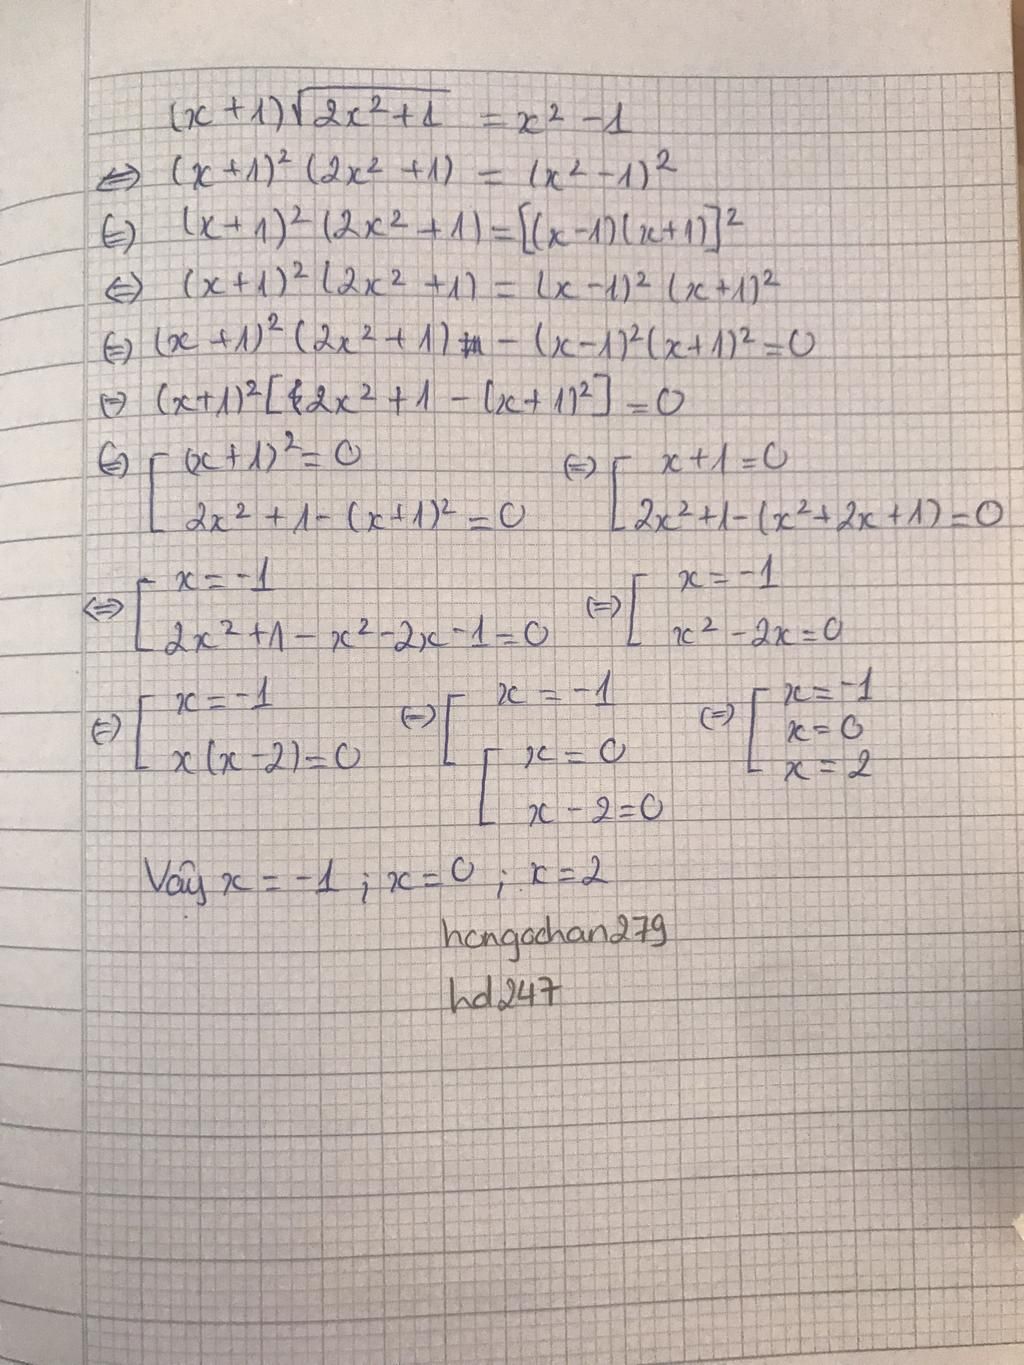 (x+1)√(2x²+1) = x²-1
⇔ (x+1)² (2x²+1) = (x²-1)²
⇔ (x+1)² (2x²+1) = [(x-1)(x+1)]²
⇔ (x+1)² (2x²+1) = (x-1)² (x+1)²
⇔ (x+1)² (2x²+1) - (x-1)² (x+1)² = 0
⇔ (x+1)² [2x²+1 - (x+1)²] = 0
⇔ [ (x+1)² = 0 ⇔ [ x+1 = 0
2x²+1-(x+1)² = 0 2x²+1-(x²+2x+1) = 0
⇔ [ x = -1 ⇔ [ x = -1
2x²+1-x²-2x-1 = 0 x²-2x = 0
⇔ [ x = -1 ⇔ [ x = -1 ⇔ [ x = -1
x(x-2) = 0 [ x = 0 x = 0
x-2 = 0 x = 2
Vậy x = -1 ; x = 0 ; x = 2
hongochan279
hd247